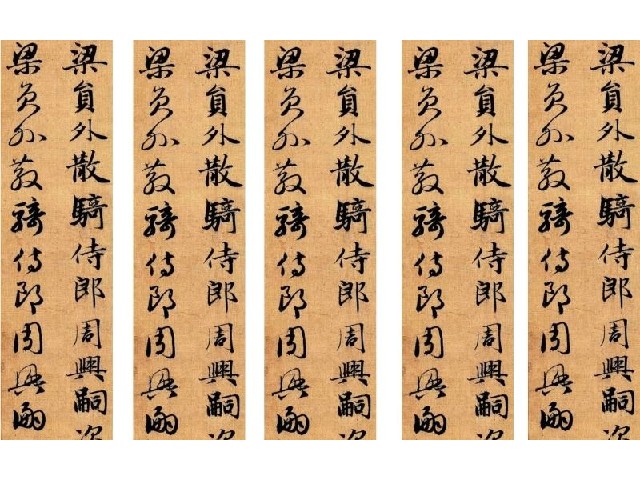 梁員外散騎侍郎周興嗣次
梁員外散騎侍郎周興嗣
梁員外散騎侍郎周興嗣次
梁員外散騎侍郎周興嗣
梁員外散騎侍郎周興嗣次
梁員外散騎侍郎周興嗣
梁員外散騎侍郎周興嗣次
梁員外散騎侍郎周興嗣
梁員外散騎侍郎周興嗣次
梁員外散騎侍郎周興嗣